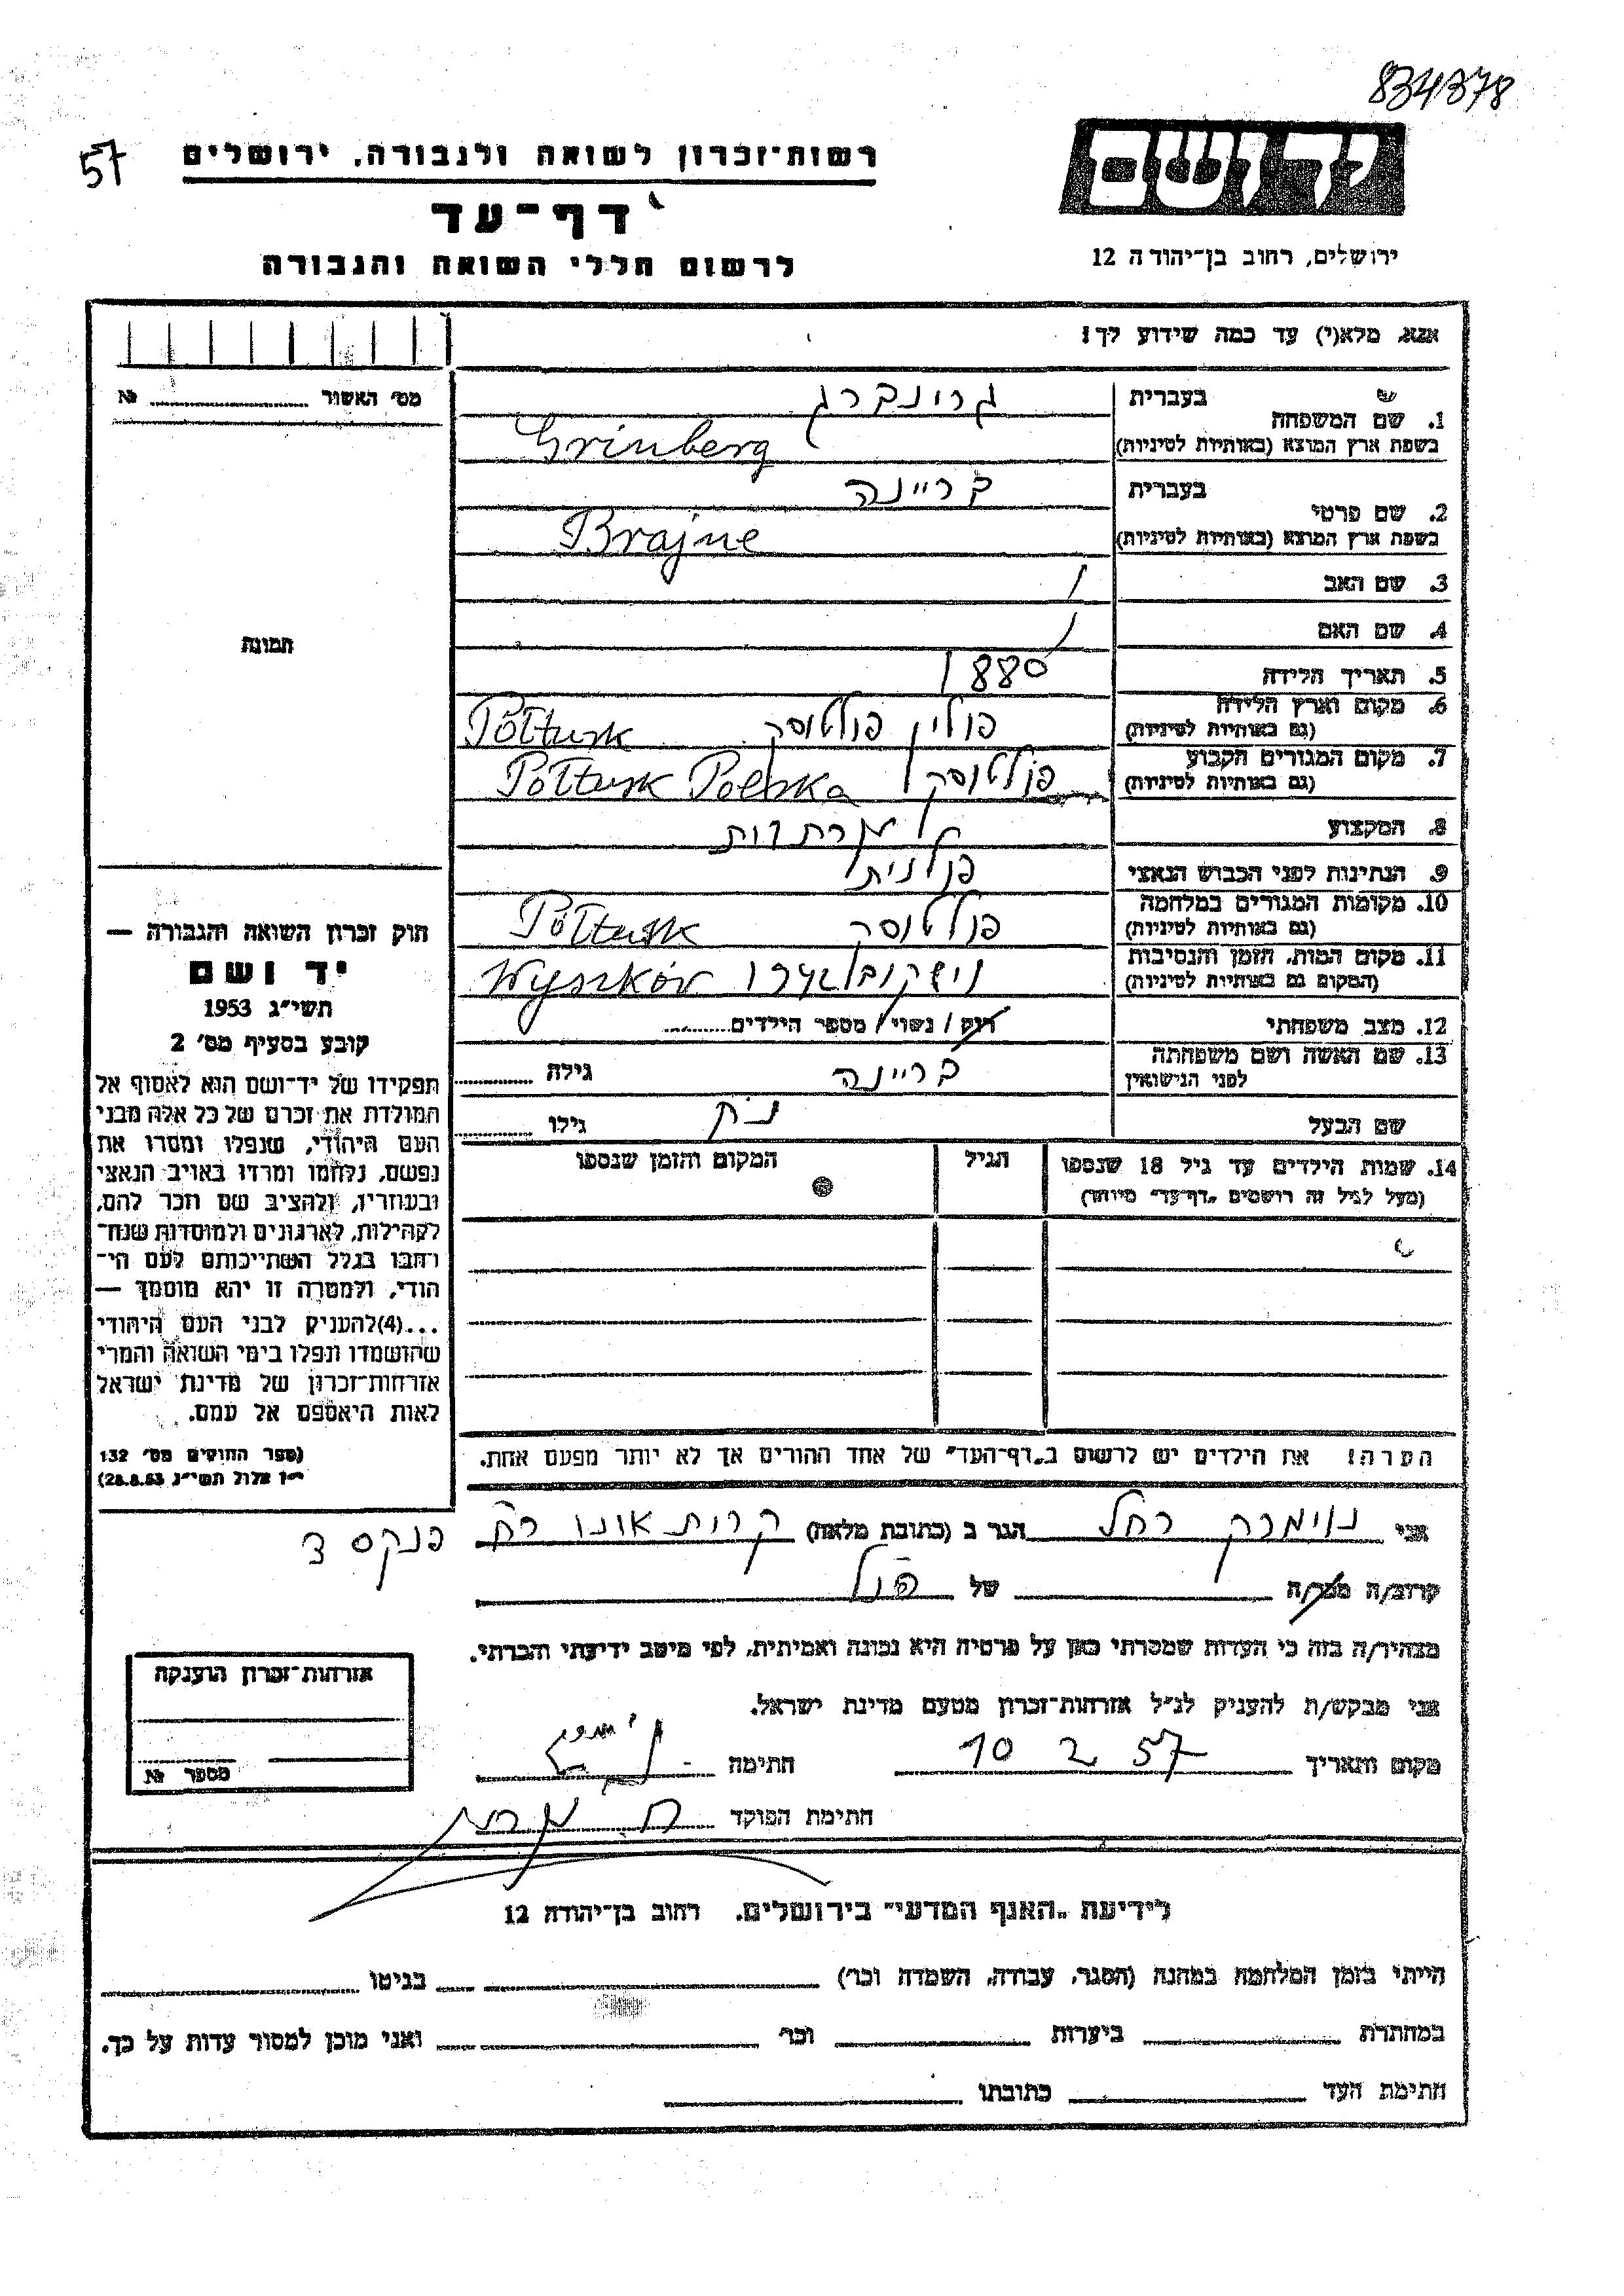 834378
57
יד ושם
רשות־זכרון לשואה ולגבורה, ירושלים
דף־עד
לרשום חללי השואה והגבורה
ירושלים, רחוב בן־יהודה 12
אנא, מלא(י) עד כמה שידוע לך!
מס׳ האשור №
בעברית גרינברג
1. שם המשפחה
בשפת ארץ המוצא (באותיות לטיניות) Grinberg
בעברית בריינה
2. שם פרטי
בשפת ארץ המוצא (באותיות לטיניות) Brajne
3. שם האב /
4. שם האם /
תמונה
5. תאריך הלידה 1880
6. מקום וארץ הלידה
(גם באותיות לטיניות) פולין פולטוסק Pòltusk
7. מקום המגורים הקבוע
(גם באותיות לטיניות) פולטוסק Pòltusk Polska
8. המקצוע
9. הנתינות לפני הכבוש הנאצי פולנית
10. מקומות המגורים במלחמה
(גם באותיות לטיניות) פולטוסק Pòltusk
11. מקום המות, הזמן והנסיבות
(המקום גם באותיות לטיניות) וישקוב Wyszków
12. מצב משפחתי רוק / נשוי / מספר הילדים
13. שם האשה ושם משפחתה
לפני הנישואין בריינה גילה
שם הבעל גילו
14. שמות הילדים עד גיל 18 שנספו הגיל המקום והזמן שנספו
(מעל לגיל זה רושמים „דף־עד״ מיוחד)
חוק זכרון השואה והגבורה —
יד ושם
תשי״ג 1953
קובע בסעיף מס׳ 2
תפקידו של יד־ושם הוא לאסוף אל
המולדת את זכרם של כל אלה מבני
העם היהודי, שנפלו ומסרו את
נפשם, נלחמו ומרדו באויב הנאצי
ובעוזריו, ולהציב שם וזכר להם,
לקהילות, לארגונים ולמוסדות שנח־
רבו בגלל השתייכותם לעם הי־
הודי, ולמטרה זו יהא מוסמך —
...(4)להעניק לבני העם היהודי
שהושמדו ונפלו בימי השואה והמרי
אזרחות־זכרון של מדינת ישראל
לאות היאספם אל עמם.
(ספר החוקים מס׳ 132
י״ז אלול תשי״ג 28.8.53)
הערה! את הילדים יש לרשום ב„דף־העד״ של אחד ההורים אך לא יותר מפעם אחת.
אני נוימרק רחל הגר ב (כתובת מלאה) קרית אונו רח׳ פנקס
קרוב/ה מכר/ה של הנ״ל
מצהיר/ה בזה כי העדות שמסרתי כאן על פרטיה היא נכונה ואמיתית, לפי מיטב ידיעתי והכרתי.
אני מבקש/ת להעניק לנ״ל אזרחות־זכרון מטעם מדינת ישראל.
מקום ותאריך 10 2 57 חתימה
חתימת הפוקד
אזרחות־זכרון הוענקה
מספר №
לידיעת „האגף המדעי״ בירושלים, רחוב בן־יהודה 12
הייתי בזמן המלחמה במחנה (הסגר, עבודה, השמדה וכר׳) בגיטו
במחתרת ביערות וכר׳ ואני מוכן למסור עדות על כך.
חתימת העד כתובתו